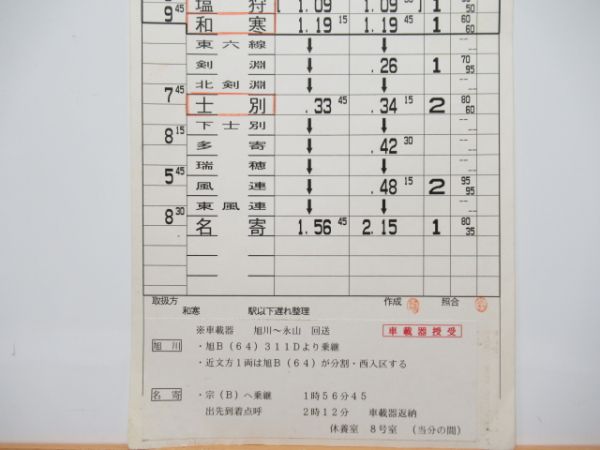 塩狩 [ 1.09 1.09 ] 1 50
9 45 和寒 1.19 15 1.19 45 1 60 60
東六線 ↓ ↓
剣淵 ↓ .26 1 70 95
北剣淵 ↓ ↓
7 45 士別 .33 45 .34 15 2 80 60
下士別 ↓ ↓
8 15 多寄 ↓ .42 30
瑞穂 ↓ ↓
5 45 風連 ↓ .48 15 2 95 95
東風連 ↓ ↓
8 30 名寄 1.56 45 2.15 1 80 35
取扱方 作成 照合
和寒 駅以下遅れ整理
※車載器 旭川～永山 回送 車載器授受
旭川 ・旭B(64)311Dより乗継
・近文方1両は旭B(64)が分割・西入区する
名寄 ・宗(B)へ乗継 1時56分45
出先到着点呼 2時12分 車載器返納
休養室 8号室 (当分の間)